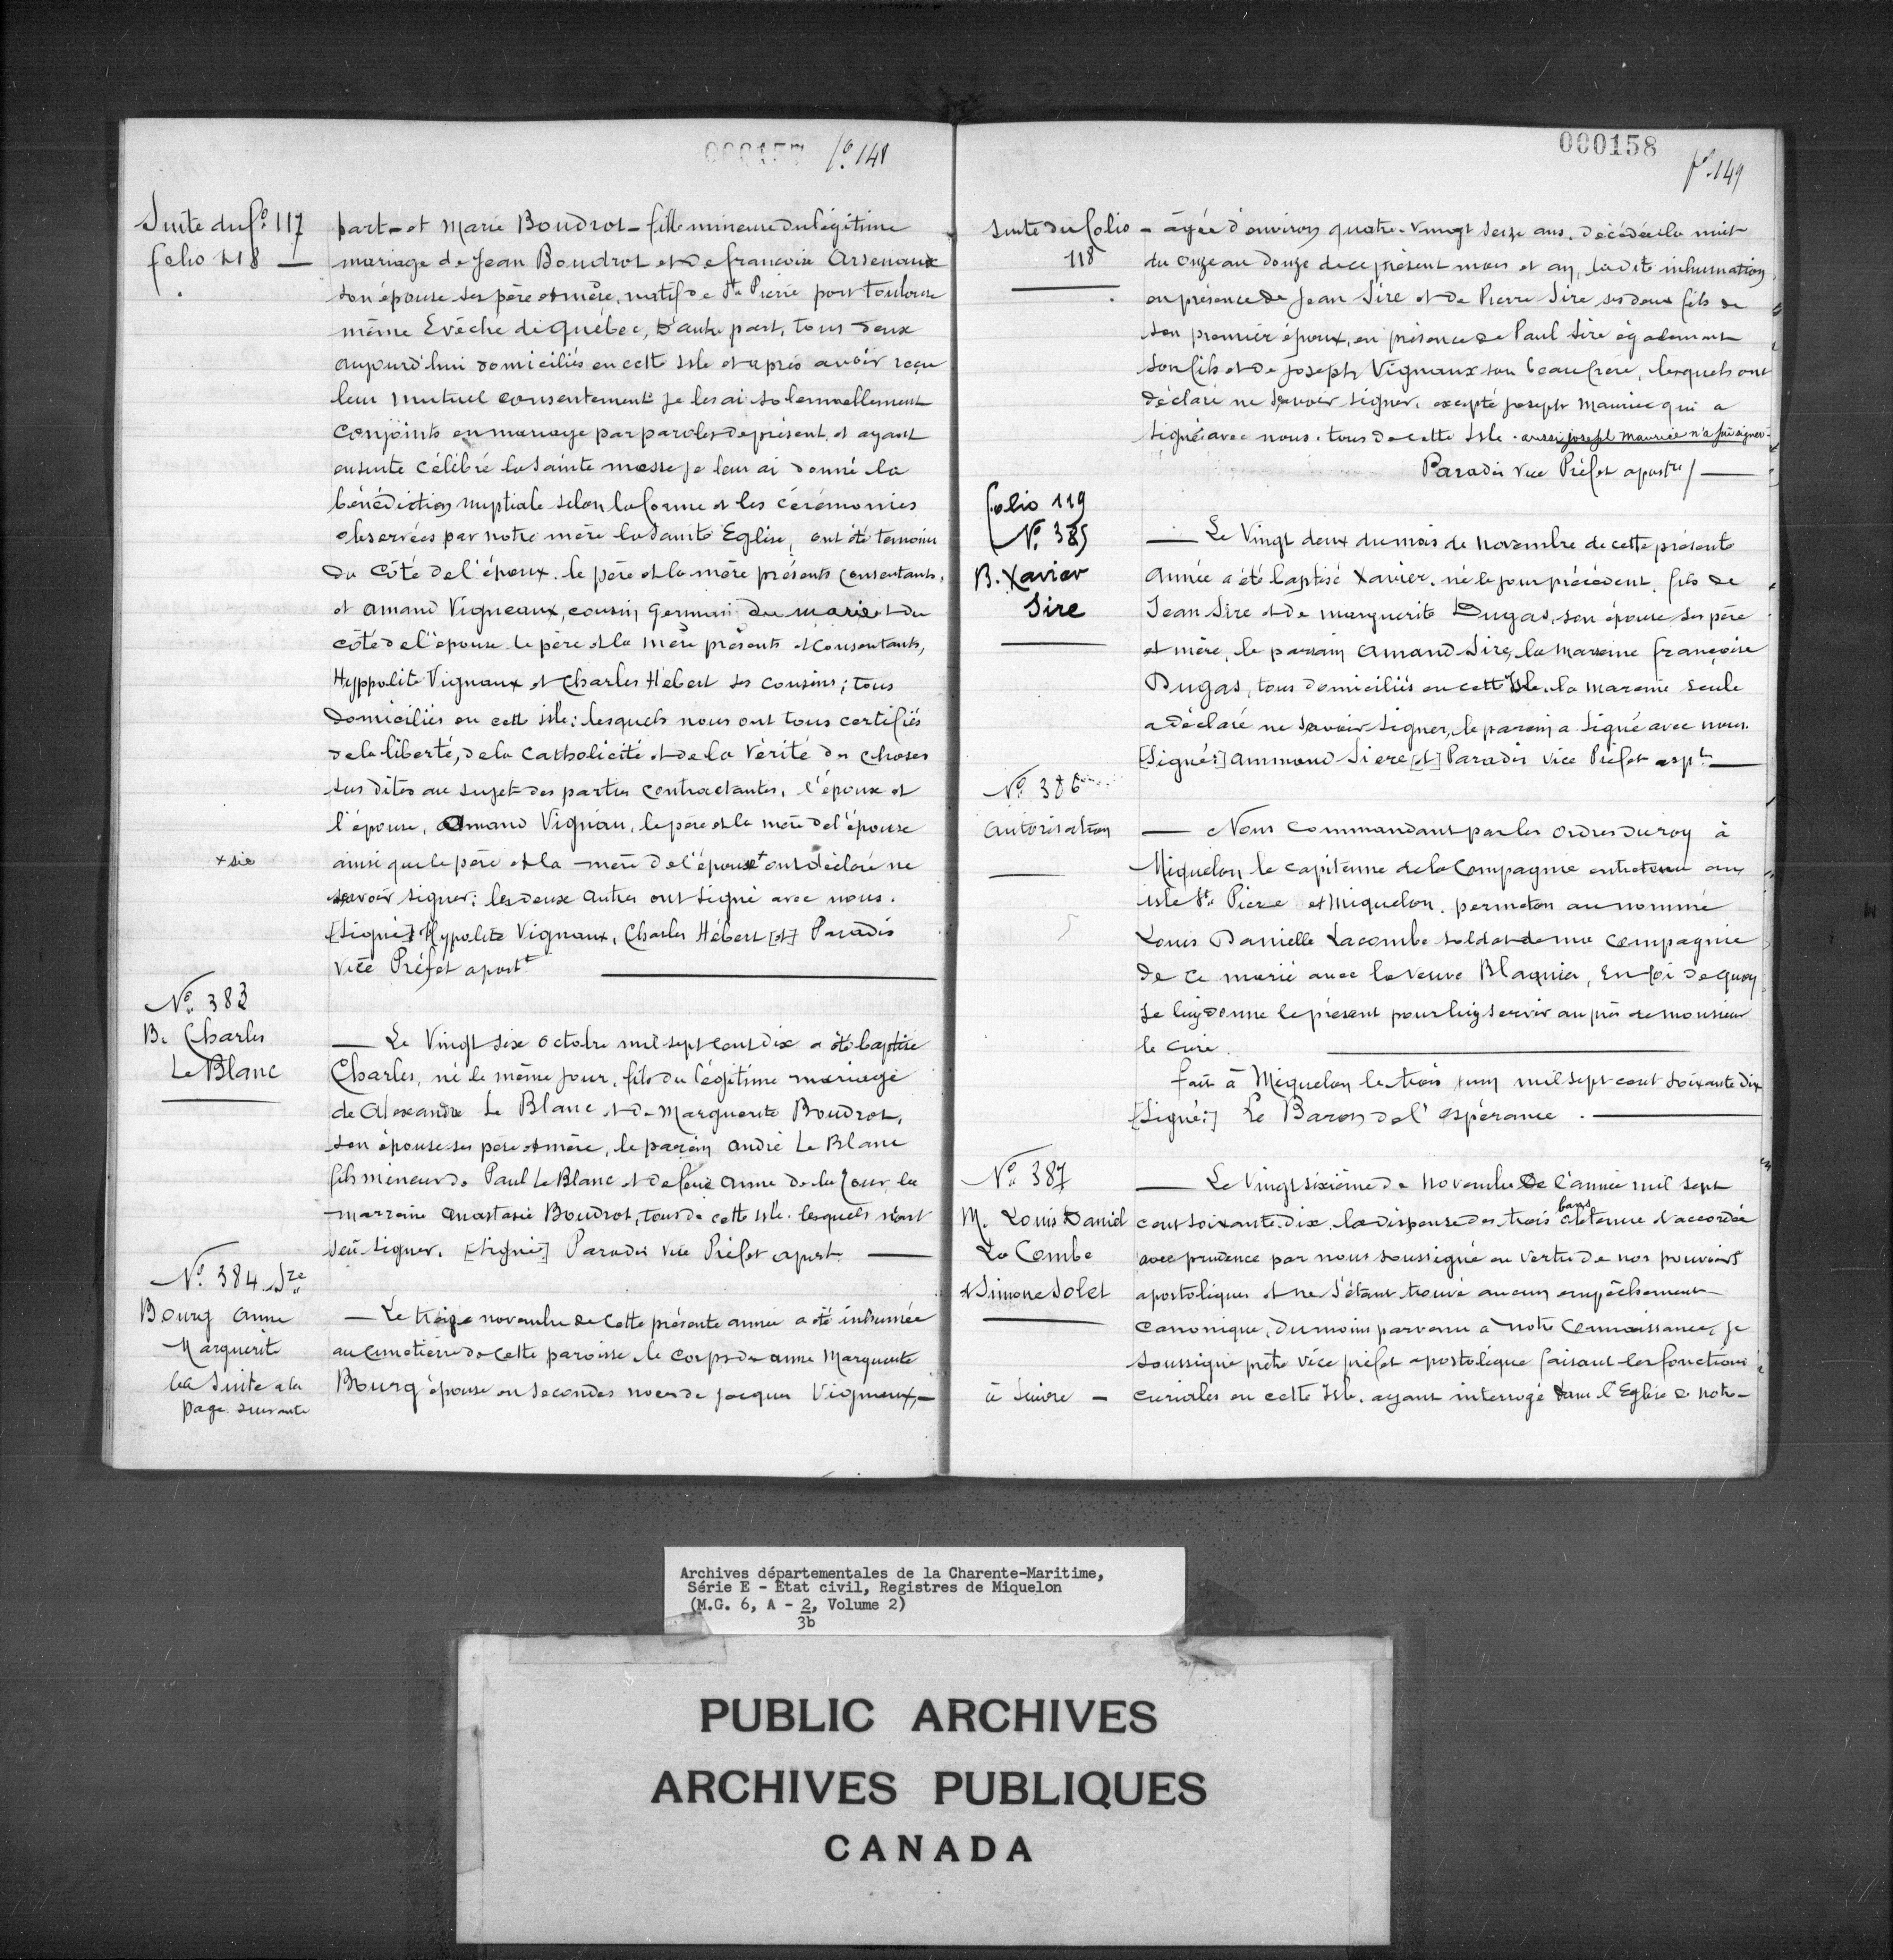 000157 fo. 148
Suite du fo. 117
folio 118 —
part - et Marie Boudrot - fille mineure du légitime
mariage de Jean Boudrot et de françoise Arsenaux
son épouse ses père et mère, natif de St. Pierre port Toulouse
même Evêche de Québec, d'autre part, tous deux
aujourd'hui domiciliés en cette isle et après avoir reçu
leur mutuel consentement je les ai solennellement
conjoints en mariage par paroles de présent, et ayant
ensuite célébré la Sainte messe je leur ai donné la
bénédiction nuptiale selon la forme et les cérémonies
observées par notre mère la Sainte Eglise, ont été temoins
du côté de l'époux. le père et la mère présents consentants,
et amand Vigneaux, cousin germain du marié et du
côté de l'épouse le père et la mère présents et consentants,
Hyppolite Vignaux et Charles Hébert ses cousins; tous
domiciliés en cette isle; lesquels nous ont tous certifiés
de la liberté, de la Catholicité et de la Vérité des choses
sus dites au sujet des parties contractantes, l'époux et
l'épouse, Amand Vignau, le père et la mère de l'épouse
+ sic
ainsi que le père et la mère de l'épouse+ ont déclaré ne
savoir signer; les deux autres ont signé avec nous.
[Signé:] Hypolite Vignaux, Charles Hébert [et] Paradis
Vice Préfet apostt.
No. 383
B. Charles
Le Blanc
— Le Vingt six octobre mil sept cent dix a été baptisé
Charles, né le même jour, fils du légitime mariage
de Alexandre Le Blanc et de Marguerite Boudrot,
son épouse ses père et mère, le parain andré Le Blanc
fils mineur de Paul Le Blanc et de feue Anne de la Tour, la
marraine Anastasie Boudrot, tous de cette isle. lesquels n'ont
seu signer. [signé:] Paradis Vice Préfet apost. —
No. 384 Sre
Bourg Anne
Marguerite
La Suite a la
page suivante
— Le treize novembre de cette présente année a été inhumée
au cimetière de cette paroisse le corps de anne Marguerite
Bourg épouse en secondes noces de Jacques Vigneaux, —
000158
fo. 149
Suite du folio
118
- âgée d'environ quatre-vingt seize ans. décédée la nuit
du onze au douze de ce présent mois et an, la dite inhumation
en présence de Jean Sire et de Pierre Sire ses deux fils de
son premier époux, en présence de Paul Sire également
son fils et de Joseph Vignaux son beau frère, lesquels ont
déclaré ne savoir signer, excepté joseph Maurice qui a
signé avec nous. tous de cette Isle. aussi joseph Maurice n'a su signer.
Paradis Vice Préfet apostre / —
folio 119
No. 385
B. Xavier
Sire
— Le Vingt deux du mois de novembre de cette présente
année a été baptisé Xavier. né le jour précédent. fils de
Jean Sire et de marguerite Dugas, son épouse ses père
et mère, le parrain Amand Sire, la Marraine françoise
Dugas, tous domiciliés en cette Isle, la maraine seule
a déclaré ne savoir signer, le parain a signé avec nous.
[Signé:] Ammand Siere [et] Paradis Vice Préfet aspt. —
No. 386
autorisation
— Nous Commandant par les ordres du roy à
Miquelon le capitenne de la Compagnie entretenue aux
isle St. Piere et Miquelon. permeton au nommé
Louis Danielle Lacombe soldat de ma compagnie
de ce marié avec la veuve Blaquier, En foi de quoy
Je luy donne le présent pour luy servir au près de monsieur
le Curé.
fait à Miquelon le trois juin mil sept cent soixante dix
[Signé:] Le Baron de l'espérance. —
No. 387
M. Louis Daniel
La Combe
& Simone Solet
— Le Vingt sixième de novembre de l'année mil sept
cent soixante dix. la dispense des trois bans obtenue & accordée
avec prudence par nous soussigné en vertu de nos pouvoirs
apostoliques et ne s'étant trouvé aucun empêchement
canonique, du moins parvenu à notre connaissance, je
soussigné prêtre vice préfet apostolique faisant les fonctions
à Suivre —
curiales en cette Isle. ayant interrogé dans l'Eglise de notre-
Archives départementales de la Charente-Maritime,
Série E - État civil, Registres de Miquelon
(M.G. 6, A - 2, Volume 2)
3b
PUBLIC ARCHIVES
ARCHIVES PUBLIQUES
CANADA